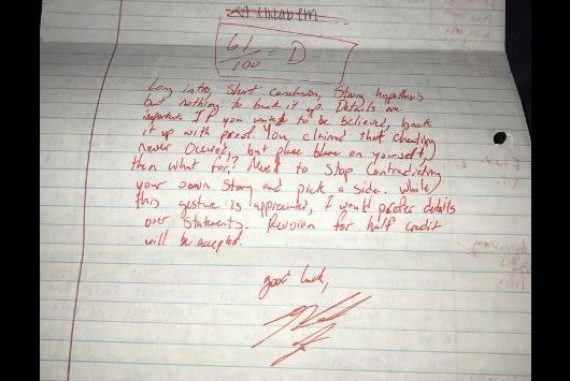 61
100 = D-
Long intro, Short conclusion, Strong hypothesis
but nothing to back it up. Details are
important. If you wanted to be believed, back
it up with proof. You claimed that cheating
never occured, but place blame on yourself,
then what for? Need to stop contradicting
your own story and pick a side. While
this gesture is appreciated, I would prefer details
over statements. Revision for half credit
will be accepted.
good luck,